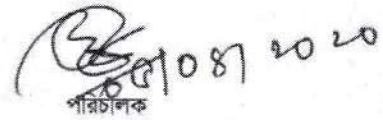 ০৫/০৪/২০২০
পরিচালক